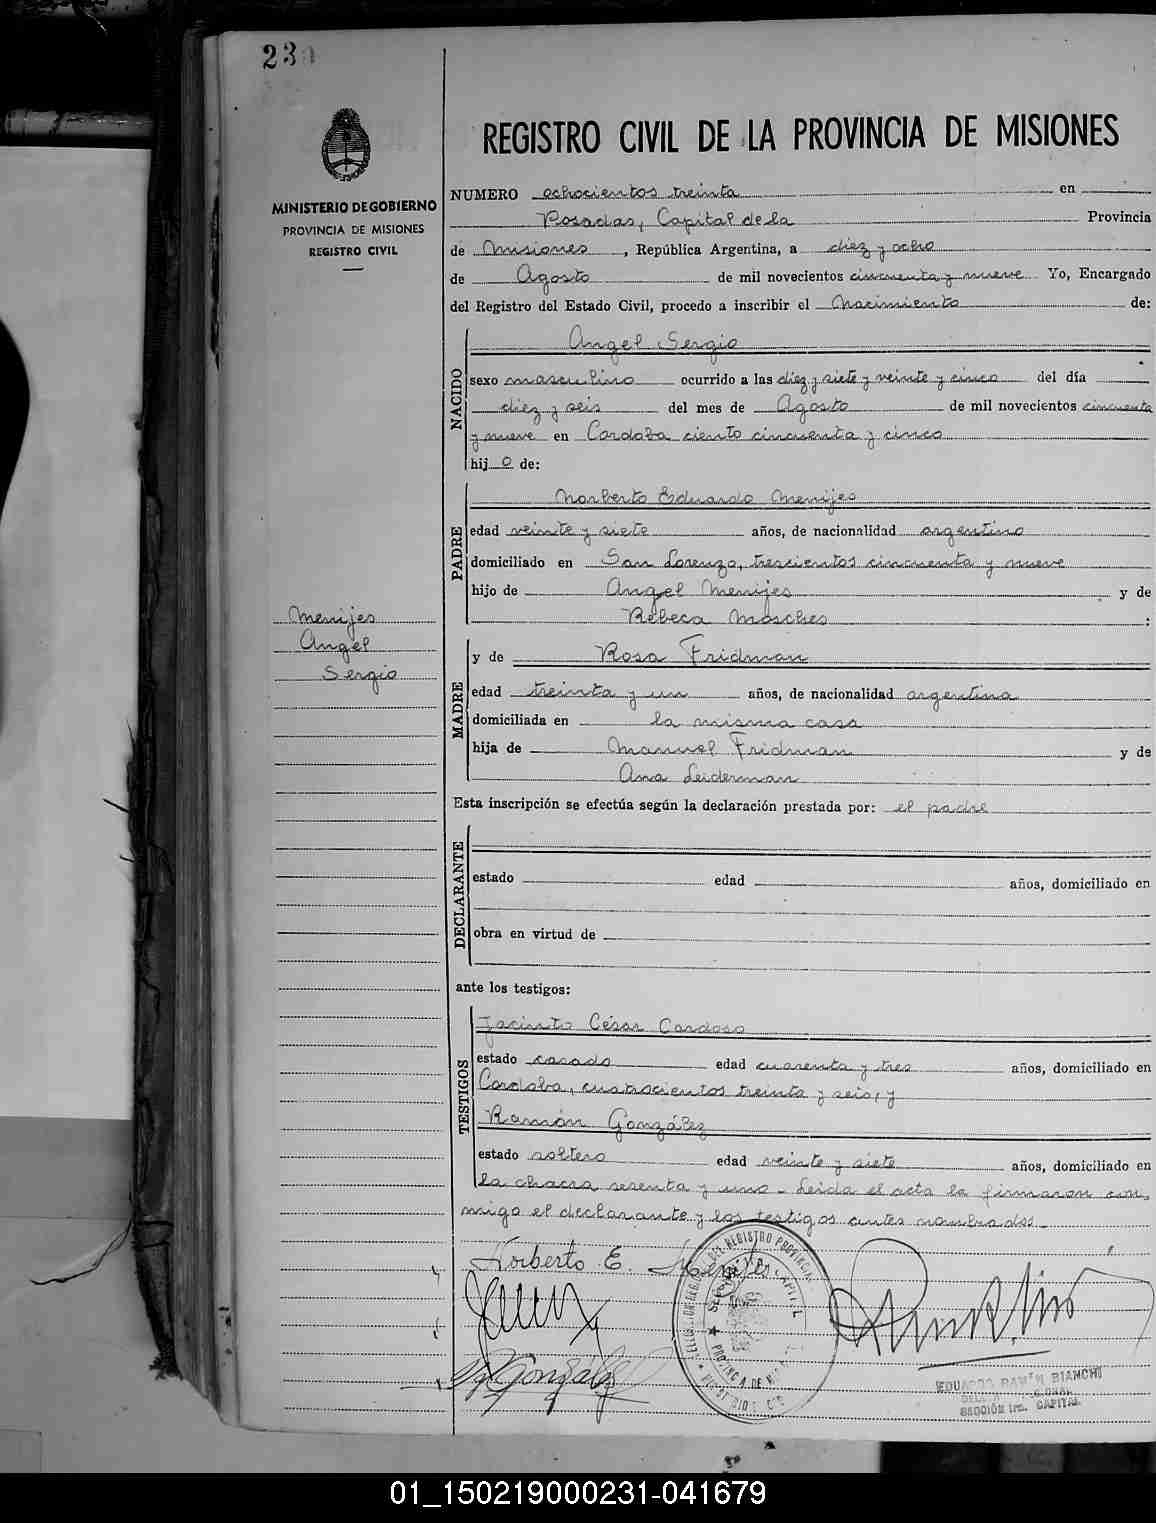 23
REGISTRO CIVIL DE LA PROVINCIA DE MISIONES
MINISTERIO DE GOBIERNO
PROVINCIA DE MISIONES
REGISTRO CIVIL
NUMERO ochocientos treinta en
Posadas, Capital de la Provincia
de Misiones, República Argentina, a diez y ocho
de Agosto de mil novecientos cincuenta y nueve Yo, Encargado
del Registro del Estado Civil, procedo a inscribir el Nacimiento de:
NACIDO
Angel Sergio
sexo masculino ocurrido a las diez y siete y veinte y cinco del día
diez y seis del mes de Agosto de mil novecientos cincuenta
y nueve en Cordoba ciento cincuenta y cinco
hij o de:
PADRE
Norberto Eduardo Menijes
edad veinte y siete años, de nacionalidad argentino
domiciliado en San Lorenzo, trescientos cincuenta y nueve
hijo de Angel Menijes y de
Rebeca Mosches :
Menijes
Angel
Sergio
MADRE
y de Rosa Fridman
edad treinta y un años, de nacionalidad argentina
domiciliada en la misma casa
hija de Manuel Fridman y de
Ana Leiderman
Esta inscripción se efectúa según la declaración prestada por: el padre
DECLARANTE
estado edad años, domiciliado en
obra en virtud de
ante los testigos:
TESTIGOS
Jacinto César Cardoso
estado casado edad cuarenta y tres años, domiciliado en
Cordoba, cuatrocientos treinta y seis, y
Ramón González
estado soltero edad veinte y siete años, domiciliado en
la chacra sesenta y uno - Leida el acta la firmaron con,
migo el declarante y los testigos antes nombrados -
Norberto E. Menijes
González
PROVINCIA DE
EDUARDO RAMÓN BIANCHI
SECCIÓN 1ra. CAPITAL
01_150219000231-041679